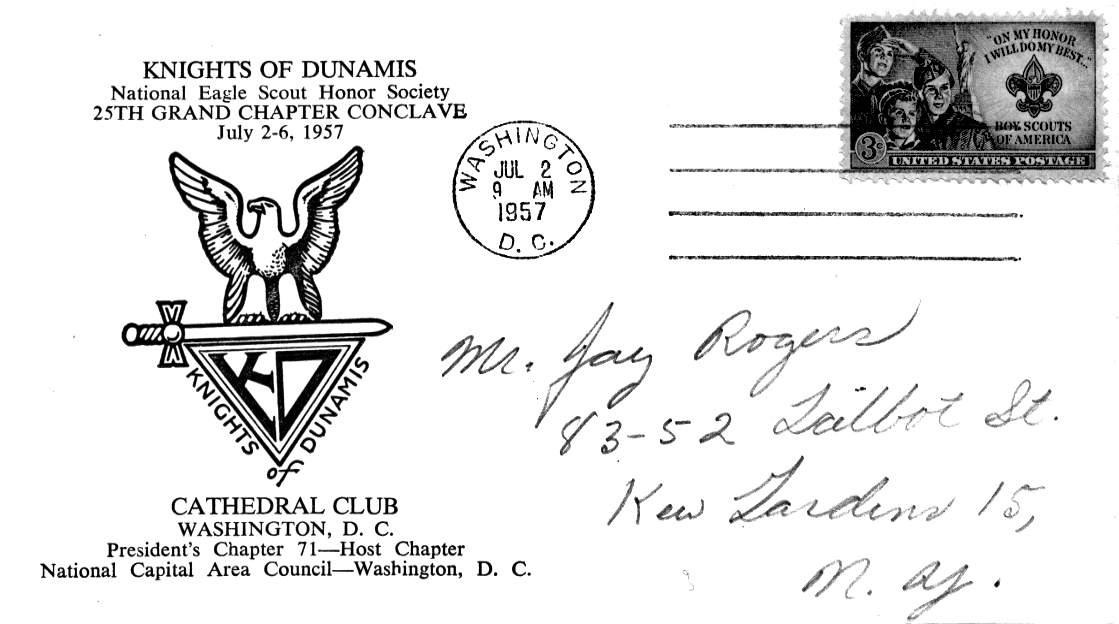 KNIGHTS OF DUNAMIS
National Eagle Scout Honor Society
25TH GRAND CHAPTER CONCLAVE
July 2-6, 1957
KD
KNIGHTS
of
DUNAMIS
CATHEDRAL CLUB
WASHINGTON, D. C.
President's Chapter 71—Host Chapter
National Capital Area Council—Washington, D. C.
WASHINGTON
JUL 2
9 AM
1957
D. C.
"ON MY HONOR
I WILL DO MY BEST..."
BOY SCOUTS
OF AMERICA
3c
UNITED STATES POSTAGE
Mr. Jay Rogers
83-52 Talbot St.
Kew Gardens 15,
N. Y.